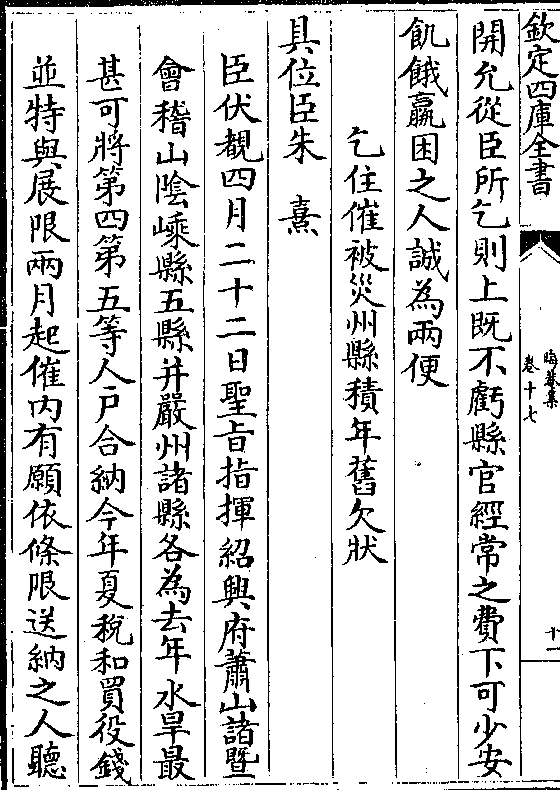 欽定四庫全書
晦菴集
卷十七
十一
開允從臣所乞則上既不虧縣官經常之費下可少安
飢餓羸困之人誠為兩便
乞住催被災州縣積年舊欠狀
具位臣朱 熹
臣伏覩四月二十二日聖旨指揮紹興府蕭山諸暨
會稽山陰嵊縣五縣并嚴州諸縣各為去年水旱最
甚可將第四第五等人户合納今年夏稅和買役錢
並特與展限兩月起催内有願依條限送納之人聽